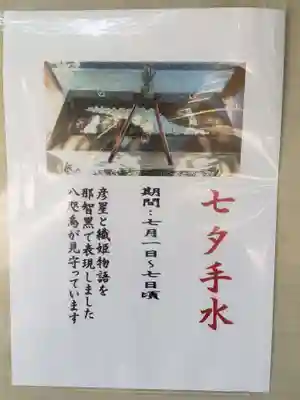 七夕手水
期間：七月一日～七日頃
彦星と織姫物語を
那智黒で表現しました
八咫烏が見守っています